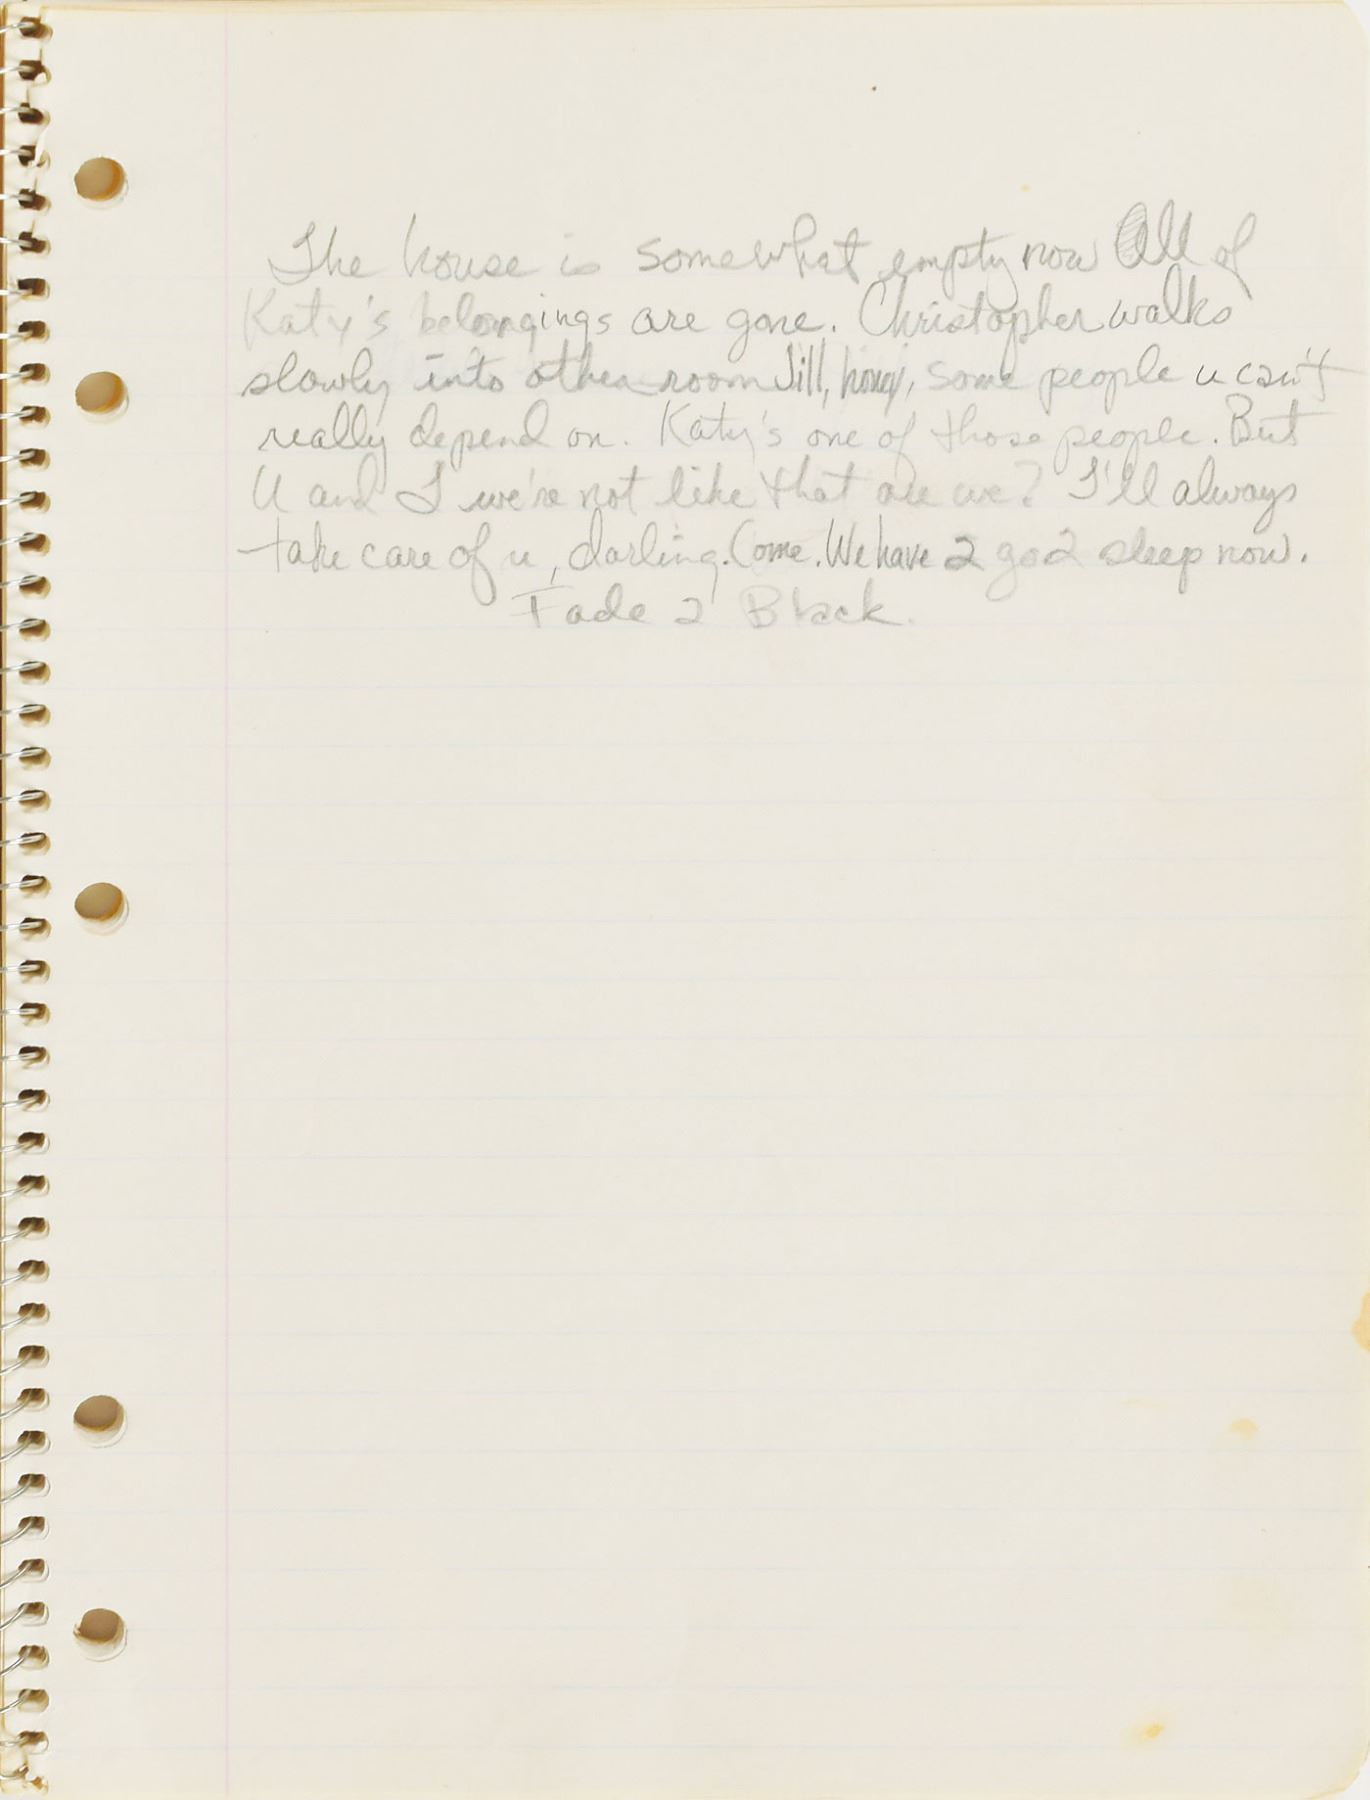 The house is somewhat empty now All of
Katy's belongings are gone. Christopher walks
slowly into other room Jill, honey, some people u can't
really depend on. Katy's one of those people. But
U and I we're not like that are we? I'll always
take care of u, darling. Come. We have 2 go 2 sleep now.
Fade 2 Black.